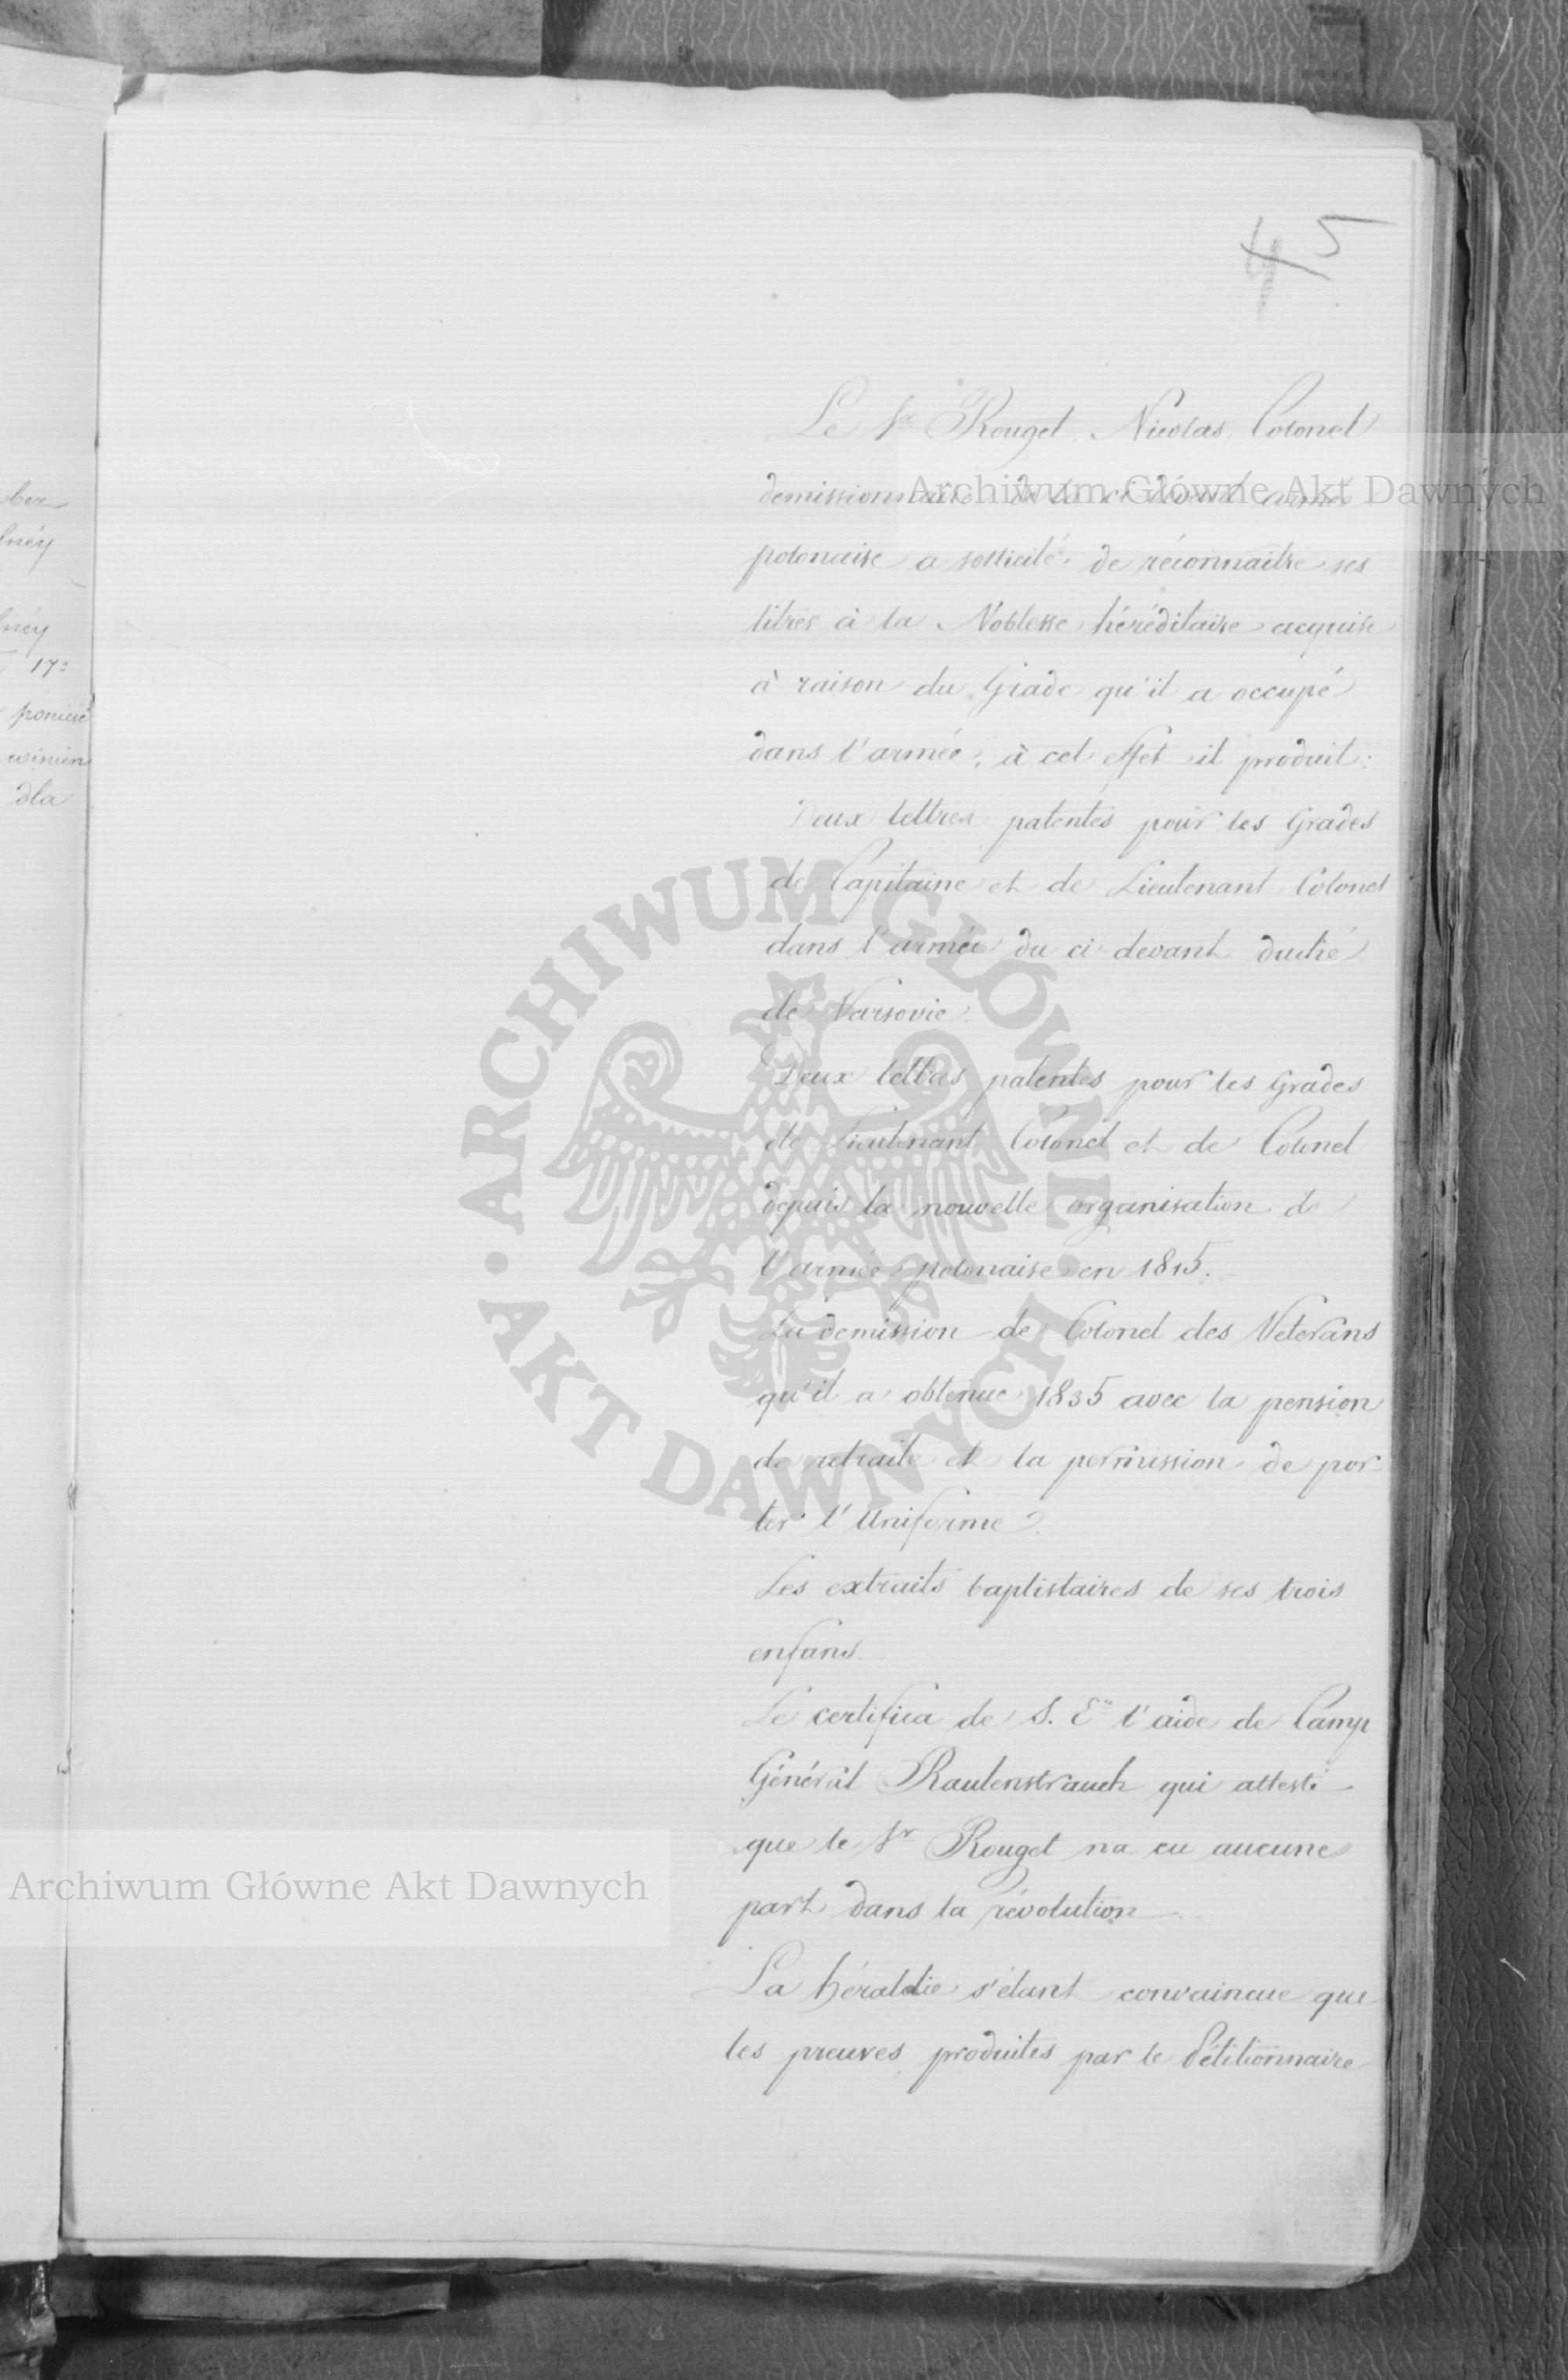 5
Le Sr Rouget, Nicolas, Colonel
demissionnaire de la ci devant armée
polonaise a sollicité de réconnaitre ses
titres à la Noblesse héréditaire acquise
à raison du Grade qu'il a occupé
dans l'armée; à cet effet il produit:
Deux lettres patentes pour les Grades
de Capitaine et de Lieutenant Colonel
dans l'armée du ci devant duché
de Varsovie.
Deux lettres patentes pour les Grades
de Lieutenant Colonel et de Colonel
depuis la nouvelle organisation de
l'armée polonaise en 1815.
La demission de Colonel des Veterans
qu'il a obtenue 1835 avec la pension
de retraite et la permission de por
ter l'Uniforme.
Les extraits baptistaires de ses trois
enfans.
Le certifica de S. E. l'aide de Camp
Général Rautenstrauch qui atteste
que le Sr Rouget n'a eu aucune
part dans la révolution
La héraldie s'étant convaincue que
les preuves, produites par le Pétitionnaire
ber
lnéy
lnéy
17
ponieść
winien
dla
Archiwum Główne Akt Dawnych
ARCHIWUM GŁÓWNE · AKT DAWNYCH ·
Archiwum Główne Akt Dawnych